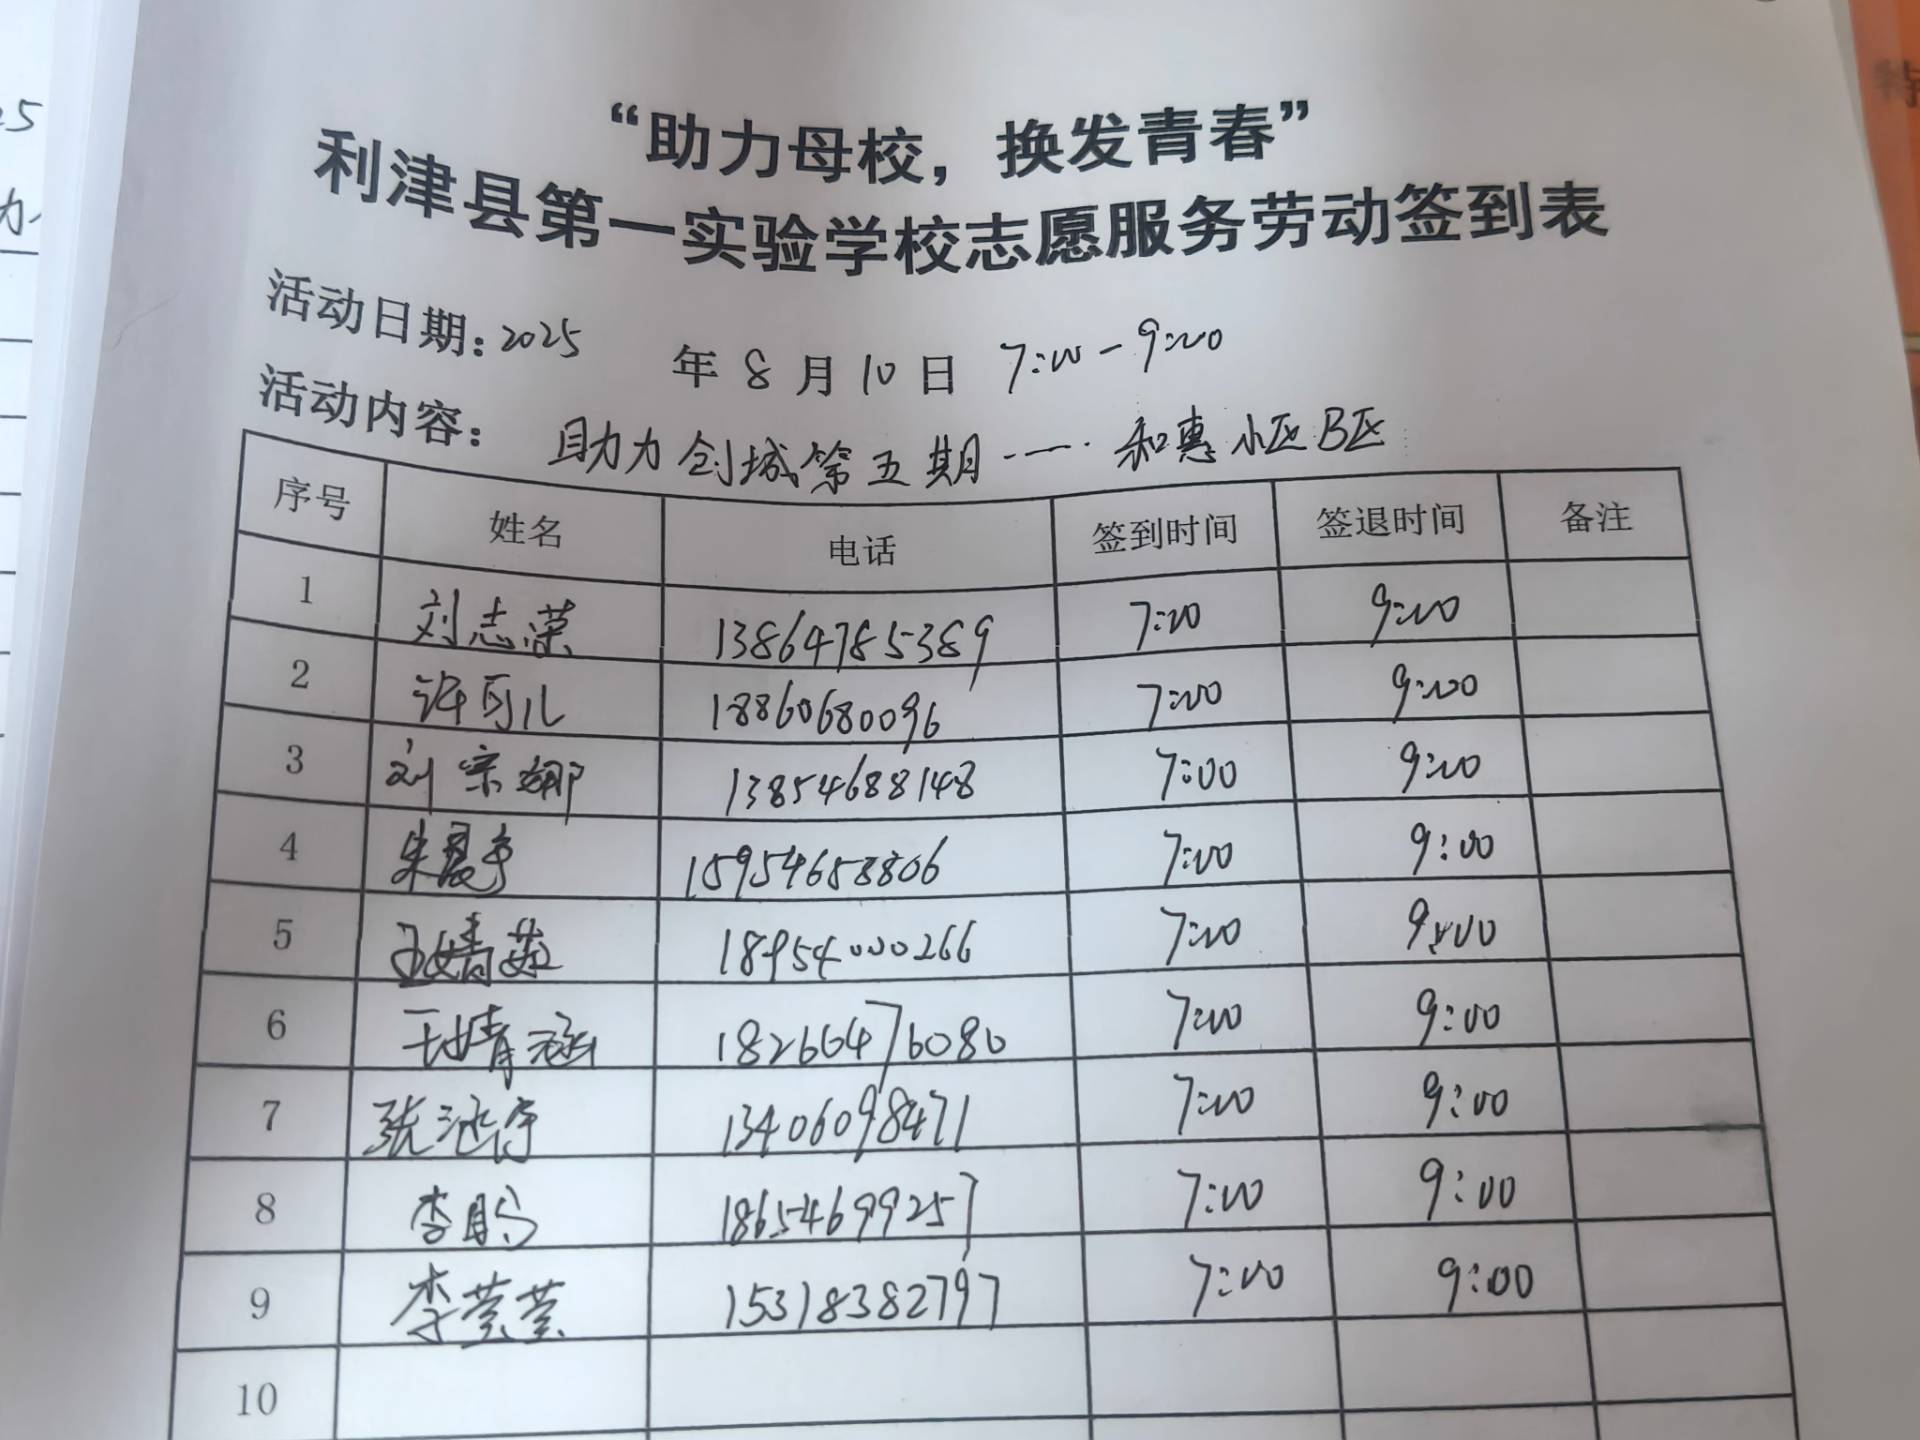 “助力母校，换发青春”
利津县第一实验学校志愿服务劳动签到表
活动日期：2025 年 8 月 10 日 7:00-9:00
活动内容：助力创城第五期——和惠小区B区
序号 姓名 电话 签到时间 签退时间 备注
1 刘志荣 13864785389 7:00 9:00
2 许可儿 18860680096 7:00 9:00
3 刘宗娜 13854688148 7:00 9:00
4 朱晨宇 15954658806 7:00 9:00
5 王婧茹 18954000266 7:00 9:00
6 王婧涵 18266476080 7:00 9:00
7 张涵宇 13406098471 7:00 9:00
8 李 18654699257 7:00 9:00
9 李莹莹 15318382797 7:00 9:00
10